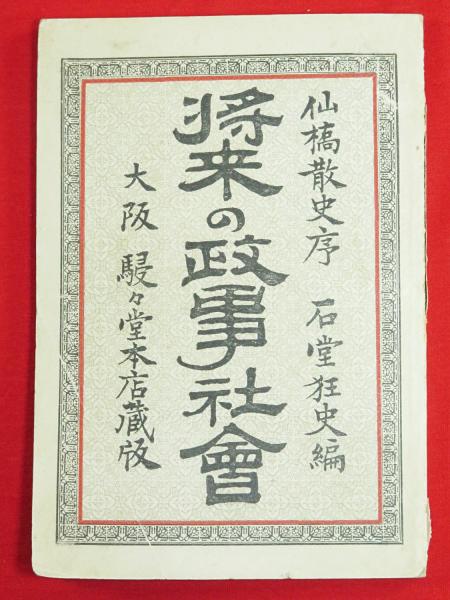 仙橋散史序　石堂狂史編
将来の政事社會
大阪　駸々堂本店蔵版